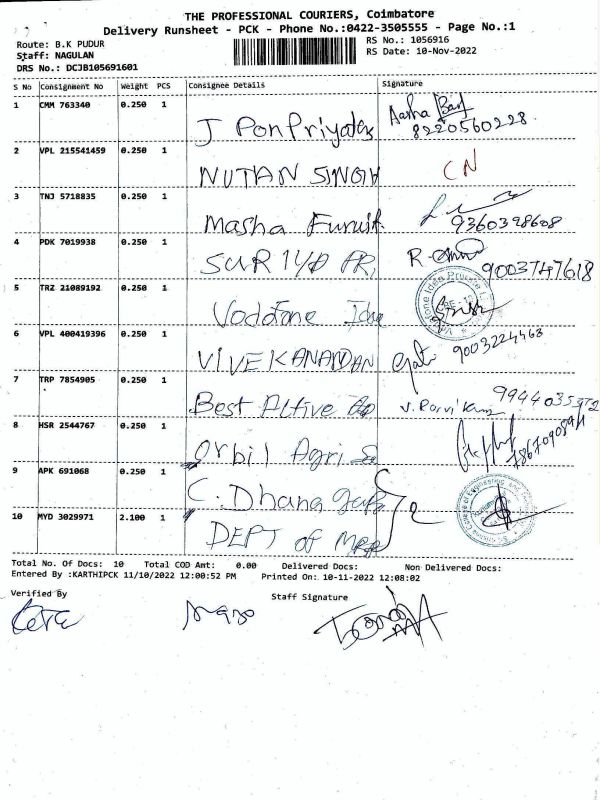 THE PROFESSIONAL COURIERS, Coimbatore
Delivery Runsheet - PCK - Phone No.:0422-3505555 - Page No.:1
Route: B.K PUDUR RS No.: 1056916
Staff: NAGULAN RS Date: 10-Nov-2022
DRS No.: DCJB105691601
S No Consignment No Weight PCS Consignee Details Signature
1 CMM 763340 0.250 1 J Ponpriyadas Aasha 8220560228
2 VPL 215541459 0.250 1 NUTAN SINGH CN
3 TNJ 5718835 0.250 1 Masha 9360398608
4 PDK 7019938 0.250 1 9003747618
5 TRZ 21089192 0.250 1 Vodafone Idea
6 VPL 400419396 0.250 1 VIVEKANANDAN 9003224463
7 TRP 7854905 0.250 1 Best
8 HSR 2544767 0.250 1 Orbil Agri
9 APK 691068 0.250 1 C. Dhana
10 MYD 3029971 2.100 1 DEPT of
Total No. Of Docs: 10 Total COD Amt: 0.00 Delivered Docs: Non Delivered Docs:
Entered By :KARTHIPCK 11/10/2022 12:00:52 PM Printed On: 10-11-2022 12:08:02
Verified By Staff Signature